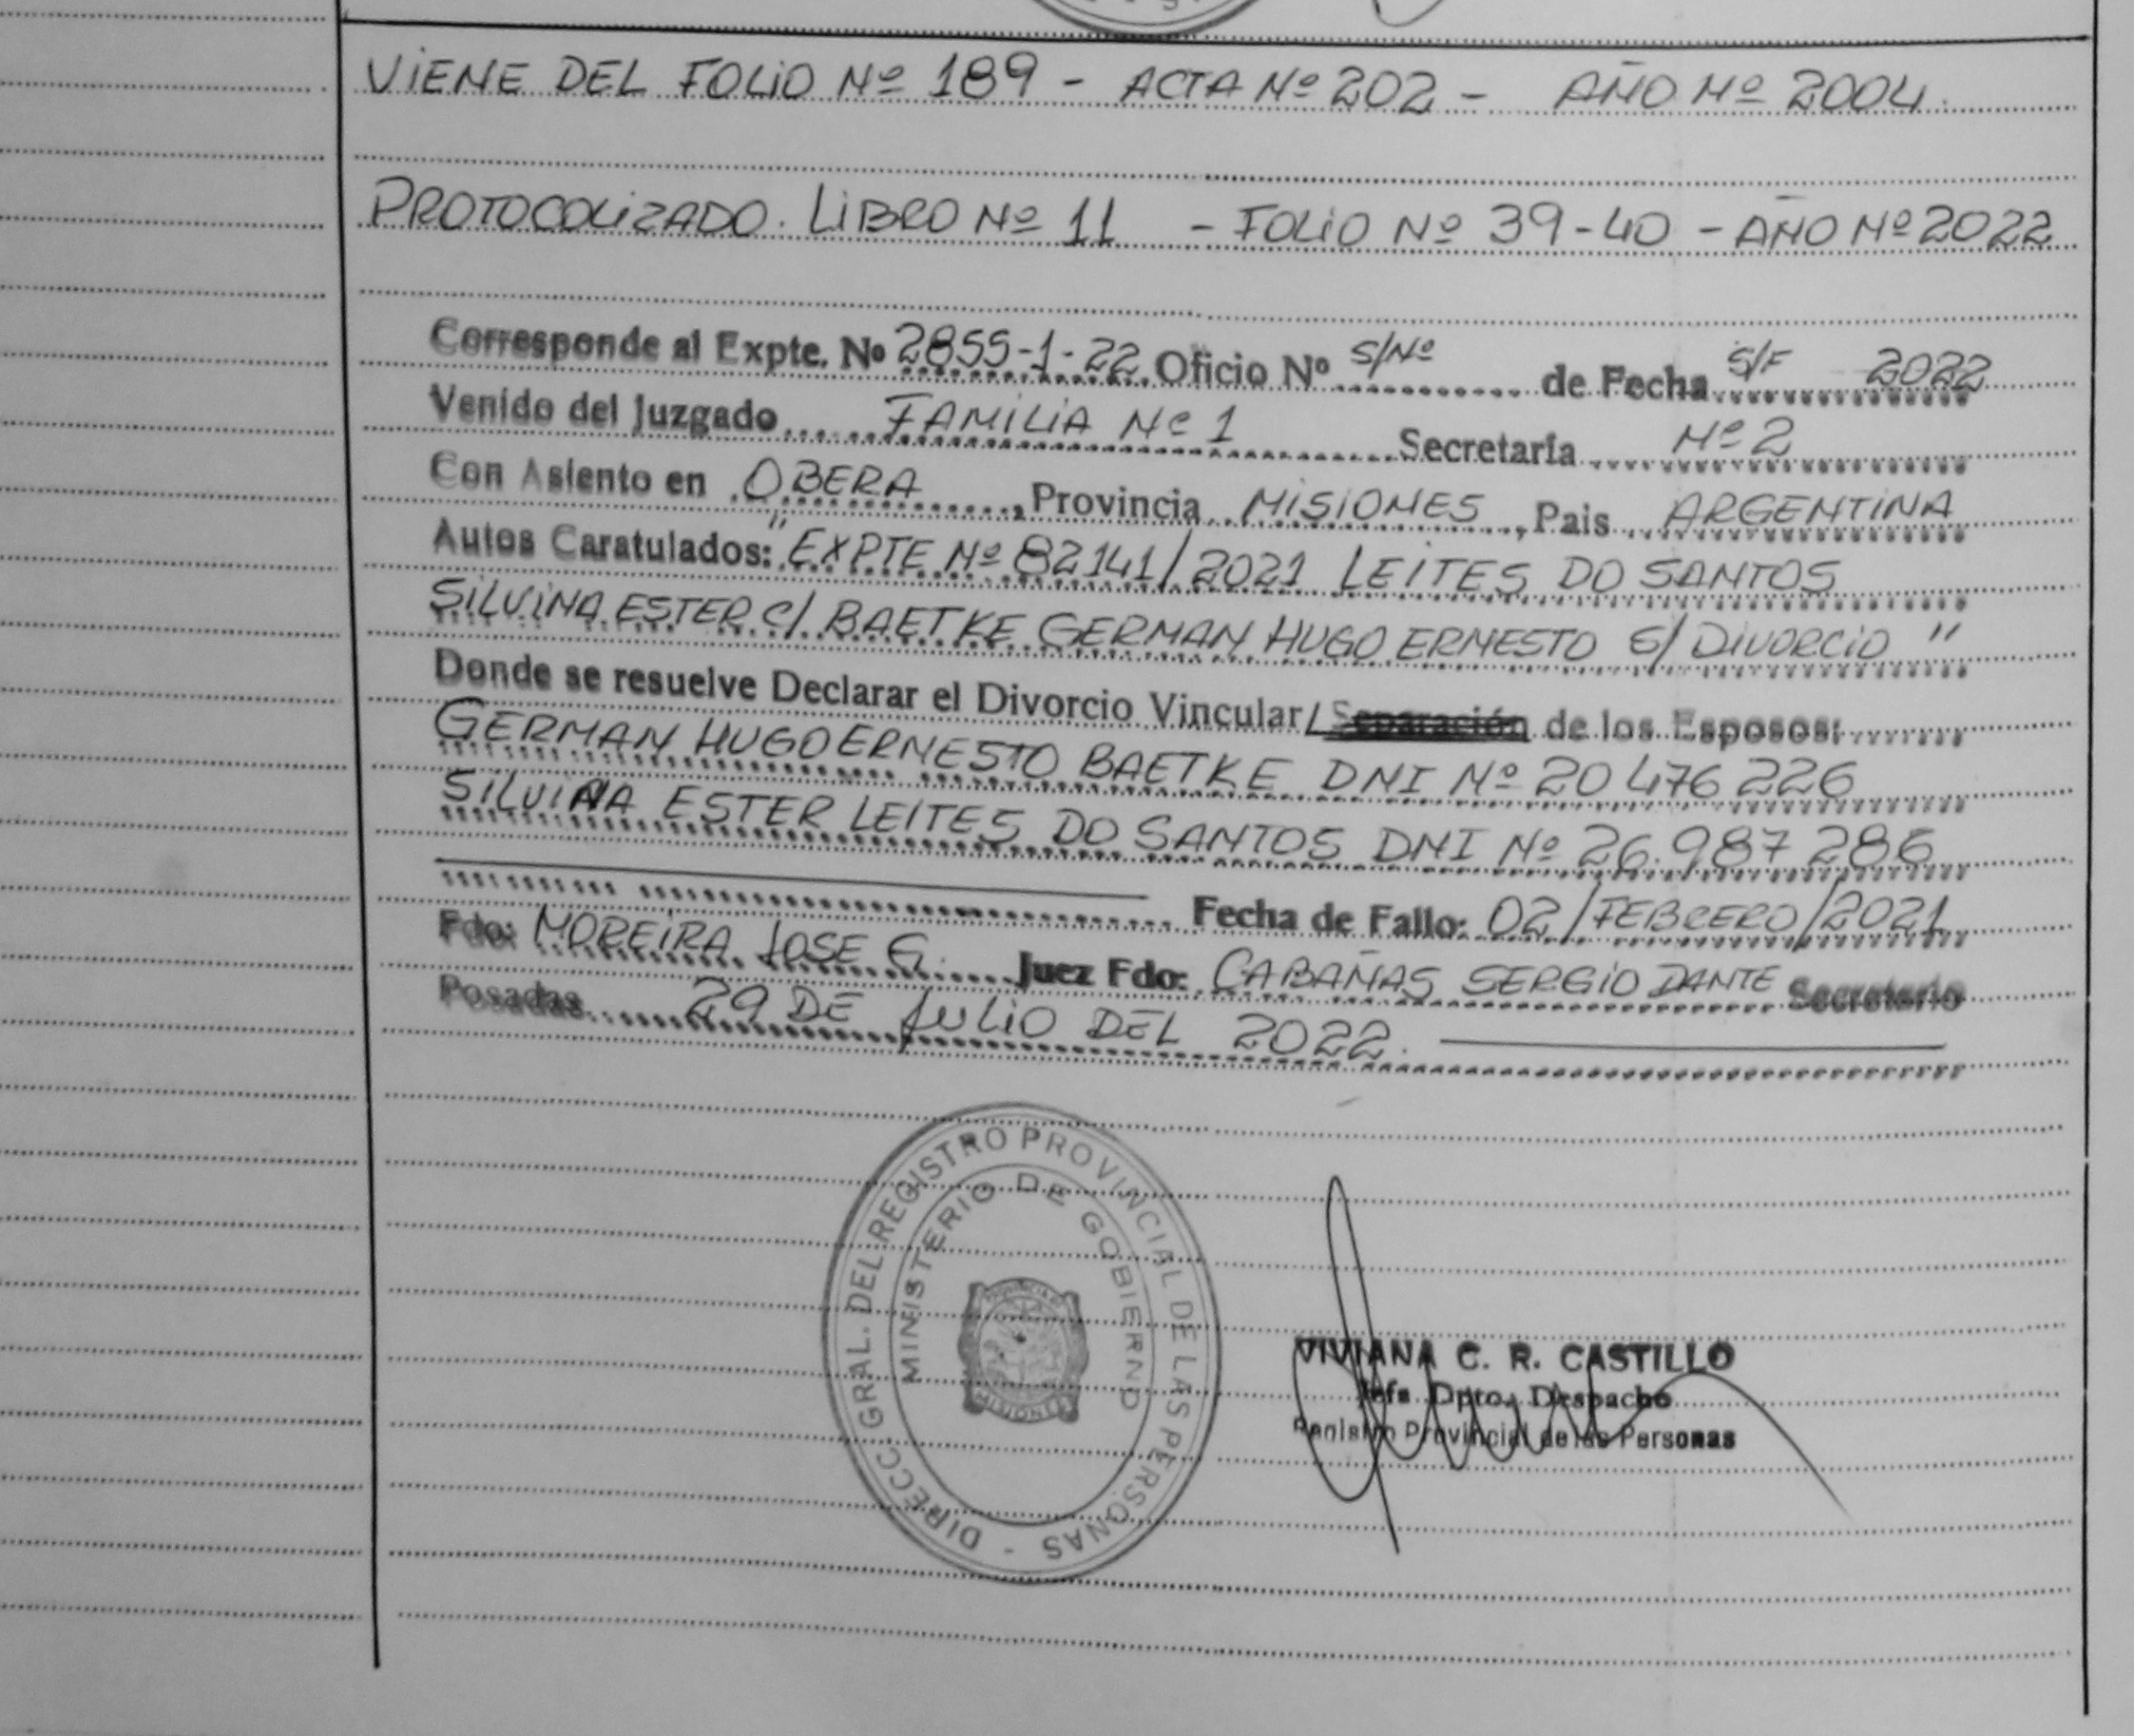 VIENE DEL FOLIO Nº 189 - ACTA Nº 202 - AÑO Nº 2004.
PROTOCOLIZADO. LIBRO Nº 11 - FOLIO Nº 39-40 - AÑO Nº 2022
Corresponde al Expte. Nº 2855-1-22 Oficio Nº S/Nº de Fecha S/F 2022
Venido del Juzgado FAMILIA Nº 1 Secretaría Nº 2
Con Asiento en OBERA, Provincia MISIONES, Pais ARGENTINA
Autos Caratulados: "EXPTE Nº 82141/2021 LEITES DO SANTOS
SILVINA ESTER C/ BAETKE GERMAN HUGO ERNESTO S/ DIVORCIO "
Donde se resuelve Declarar el Divorcio Vincular/Separación de los Esposos:
GERMAN HUGO ERNESTO BAETKE DNI Nº 20 476 226
SILVINA ESTER LEITES DO SANTOS DNI Nº 26.987 286
Fecha de Fallo: 02/FEBRERO/2021
Fdo: MOREIRA JOSE G. Juez Fdo: CABAÑAS SERGIO DANTE Secretario
Posadas 29 DE JULIO DEL 2022.
DIRECC. GRAL. DEL REGISTRO PROVINCIAL DE LAS PERSONAS -
MINISTERIO DE GOBIERNO
PROVINCIA DE
MISIONES
VIVIANA C. R. CASTILLO
Jefa Dpto. Despacho
Registro Provincial de las Personas